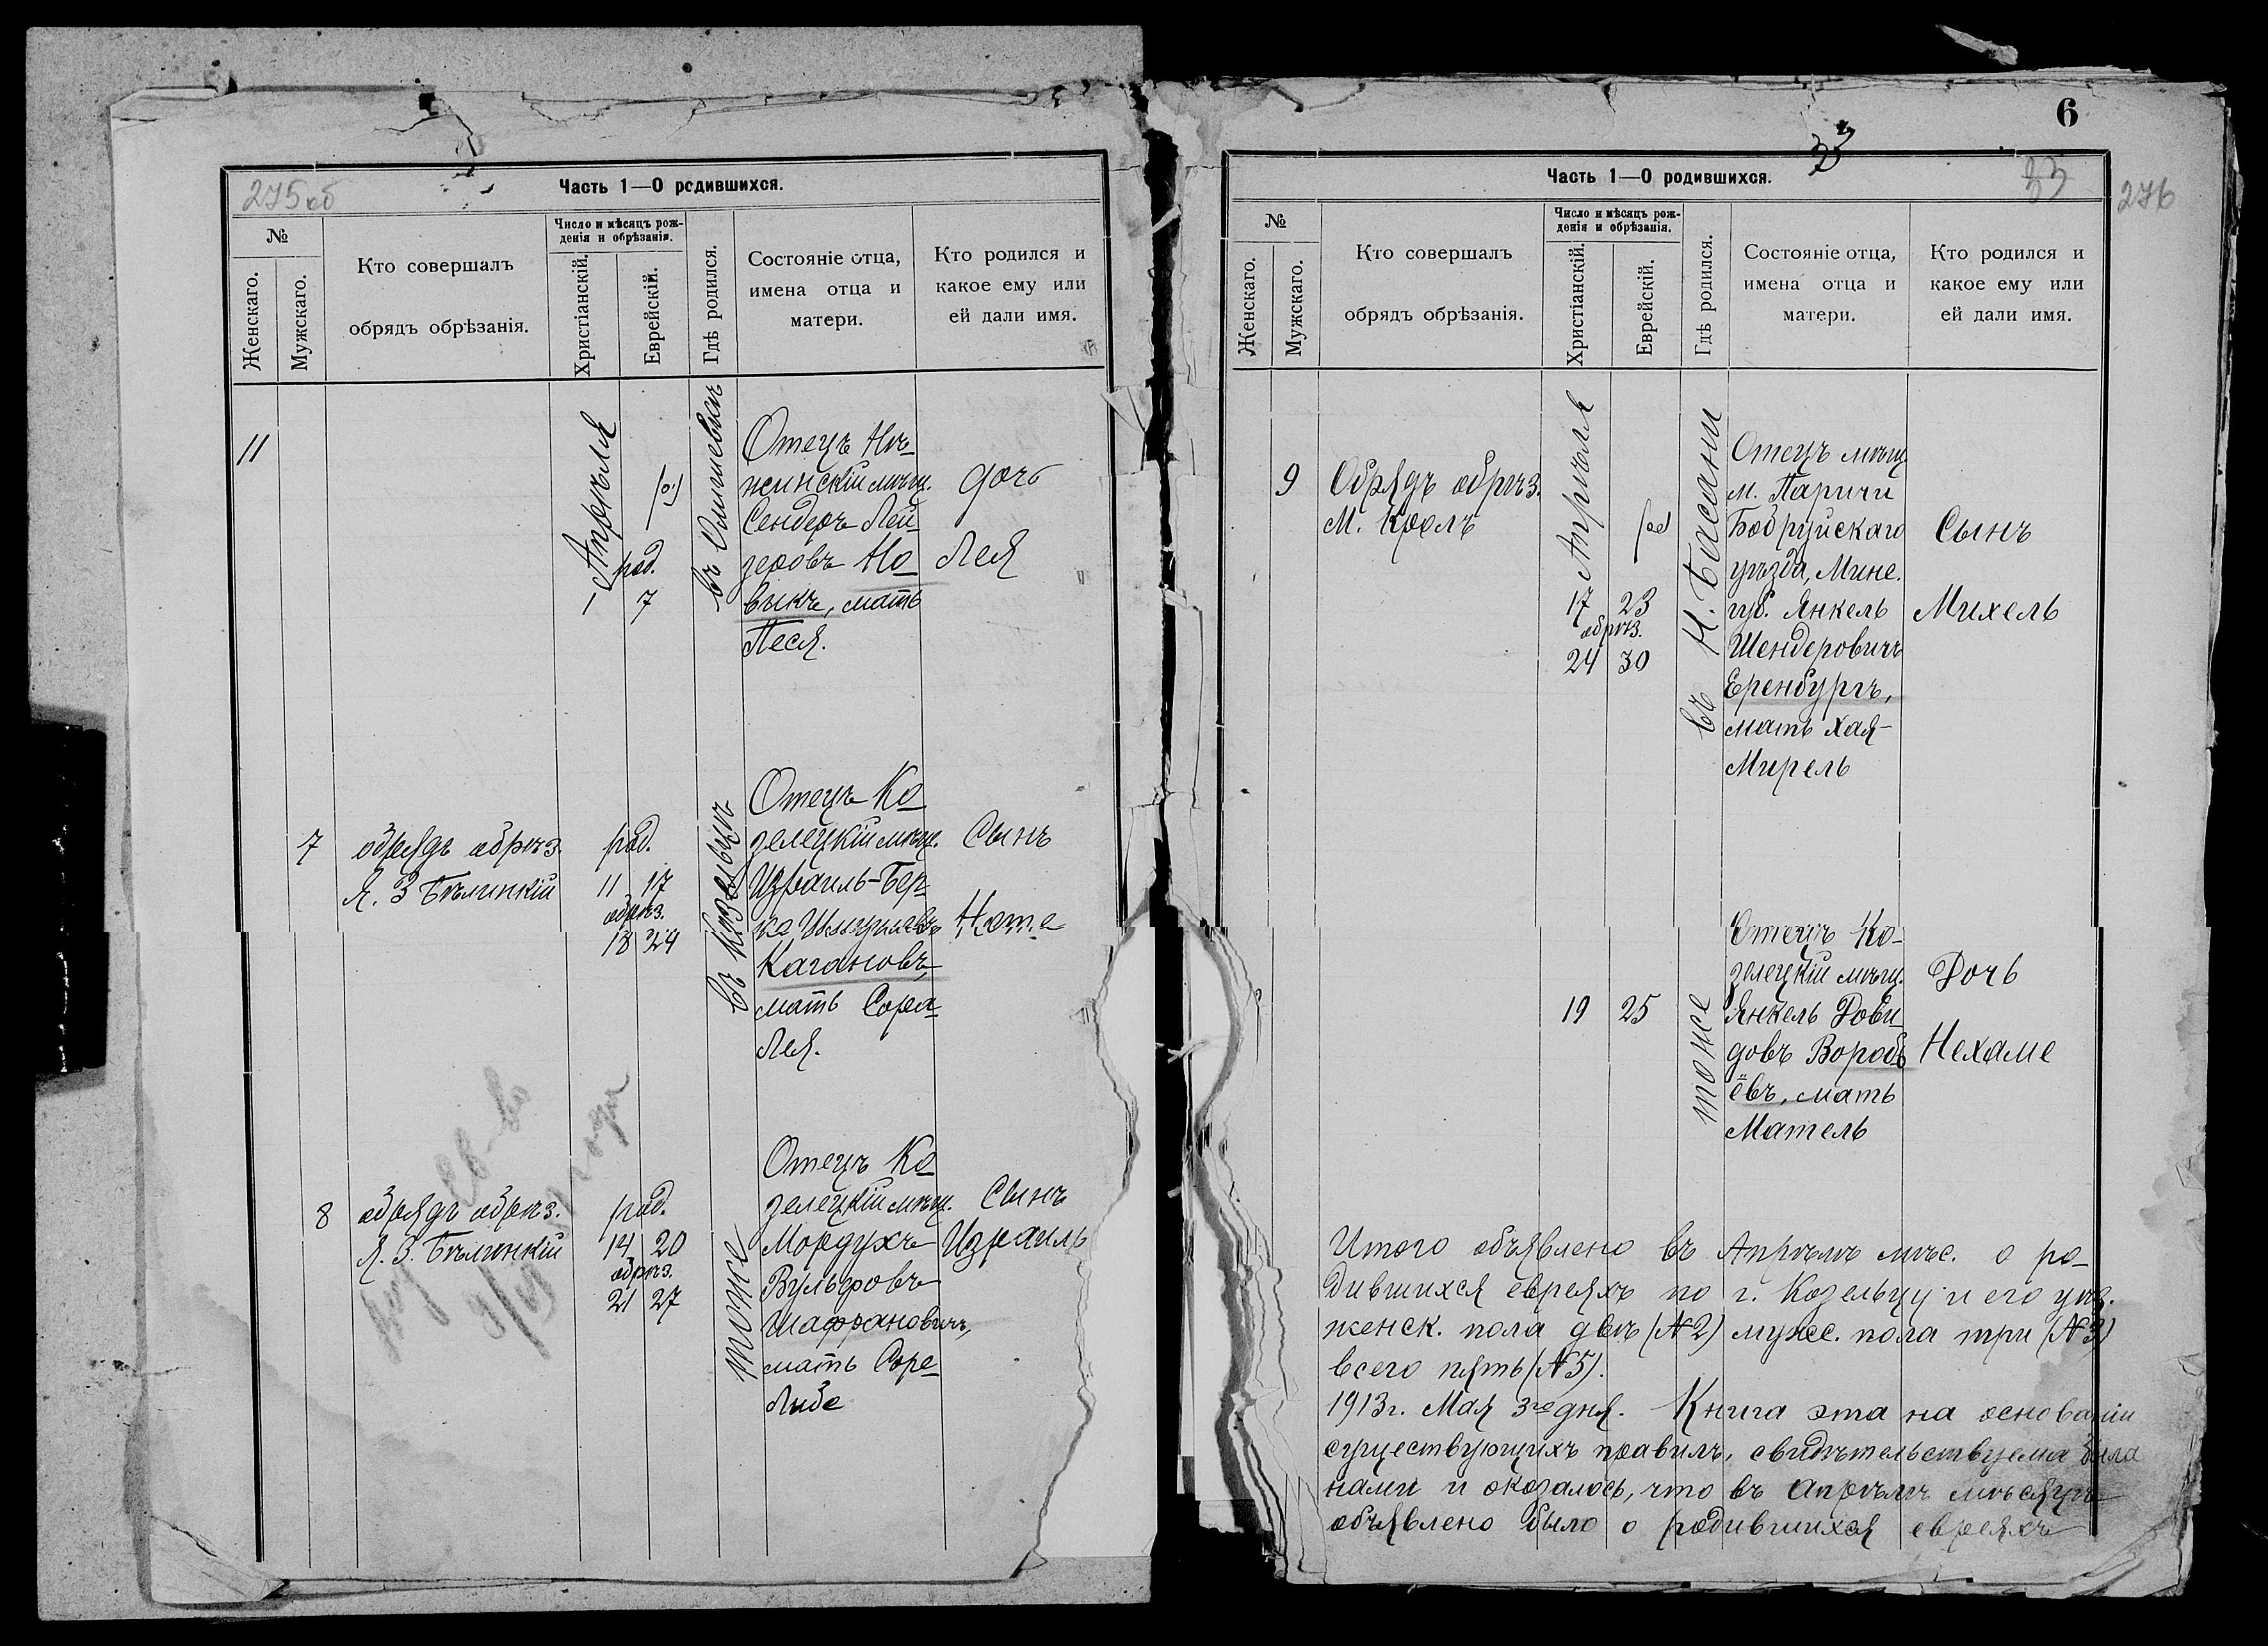 275об
Часть 1—О родившихся.
№
Женскаго.
Мужскаго.
Кто совершалъ
обрядъ обрѣзанія.
Число и мѣсяцъ рож-
денія и обрѣзанія.
Христіанскій.
Еврейскій.
Гдѣ родился.
Состояніе отца,
имена отца и
матери.
Кто родился и
какое ему или
ей дали имя.
11
Апрѣля
род.
1 7
Отецъ Нѣ-
жинскій мѣщ.
Сендеръ Лей-
зеровъ Но-
викъ, мать
Песя.
дочь
Лея
7
обрядъ обрѣз.
Я. З Бѣлинкій
род.
11 17
обрѣз.
18 24
въ Козельцѣ
Отецъ Ко-
зелецкій мѣщ.
Израиль-Бер-
ка
Кагановъ,
мать Сора-
Лея.
Сынъ
Ноте
8
обрядъ обрѣз.
Я. З. Бѣлинкій
род.
14 20
обрѣз.
21 27
тоже
Отецъ Ко-
зелецкій мѣщ.
Мордухъ
Вульфовъ
Шафрановичъ,
мать Соре-
Либе
Сынъ
Израиль
6
33
276
Часть 1—О родившихся.
№
Женскаго.
Мужскаго.
Кто совершалъ
обрядъ обрѣзанія.
Число и мѣсяцъ рож-
денія и обрѣзанія.
Христіанскій.
Еврейскій.
Гдѣ родился.
Состояніе отца,
имена отца и
матери.
Кто родился и
какое ему или
ей дали имя.
9
Обрядъ обрѣз.
М. Кролъ
Апрѣля
17 23
обрѣз.
24 30
въ Н. Басани
Отецъ мѣщ.
м. Паричи
Бобруйскаго
уѣзда, Минс.
губ. Янкель
Шендеровичъ
Еренбургъ,
мать Хая-
Мирель
Сынъ
Михель
19 25
тоже
Отецъ Ко-
зелецкій мѣщ.
Янкель Дови-
довъ Воробь
ёвъ, мать
Матель
Дочь
Нехаме
Итого объявлено въ Апрѣлѣ мѣс. о ро-
дившихся евреяхъ по г. Козельцу и его уѣз.
женск. пола двѣ (№2) мужс. пола три (№3)
всего пять (№5).
1913г. Мая 3го дня. Книга эта на основаніи
существующихъ правилъ, свидѣтельствуема была
нами и оказалось, что въ Апрѣлѣ мѣсяцѣ
объявлено было о родившихся евреяхъ